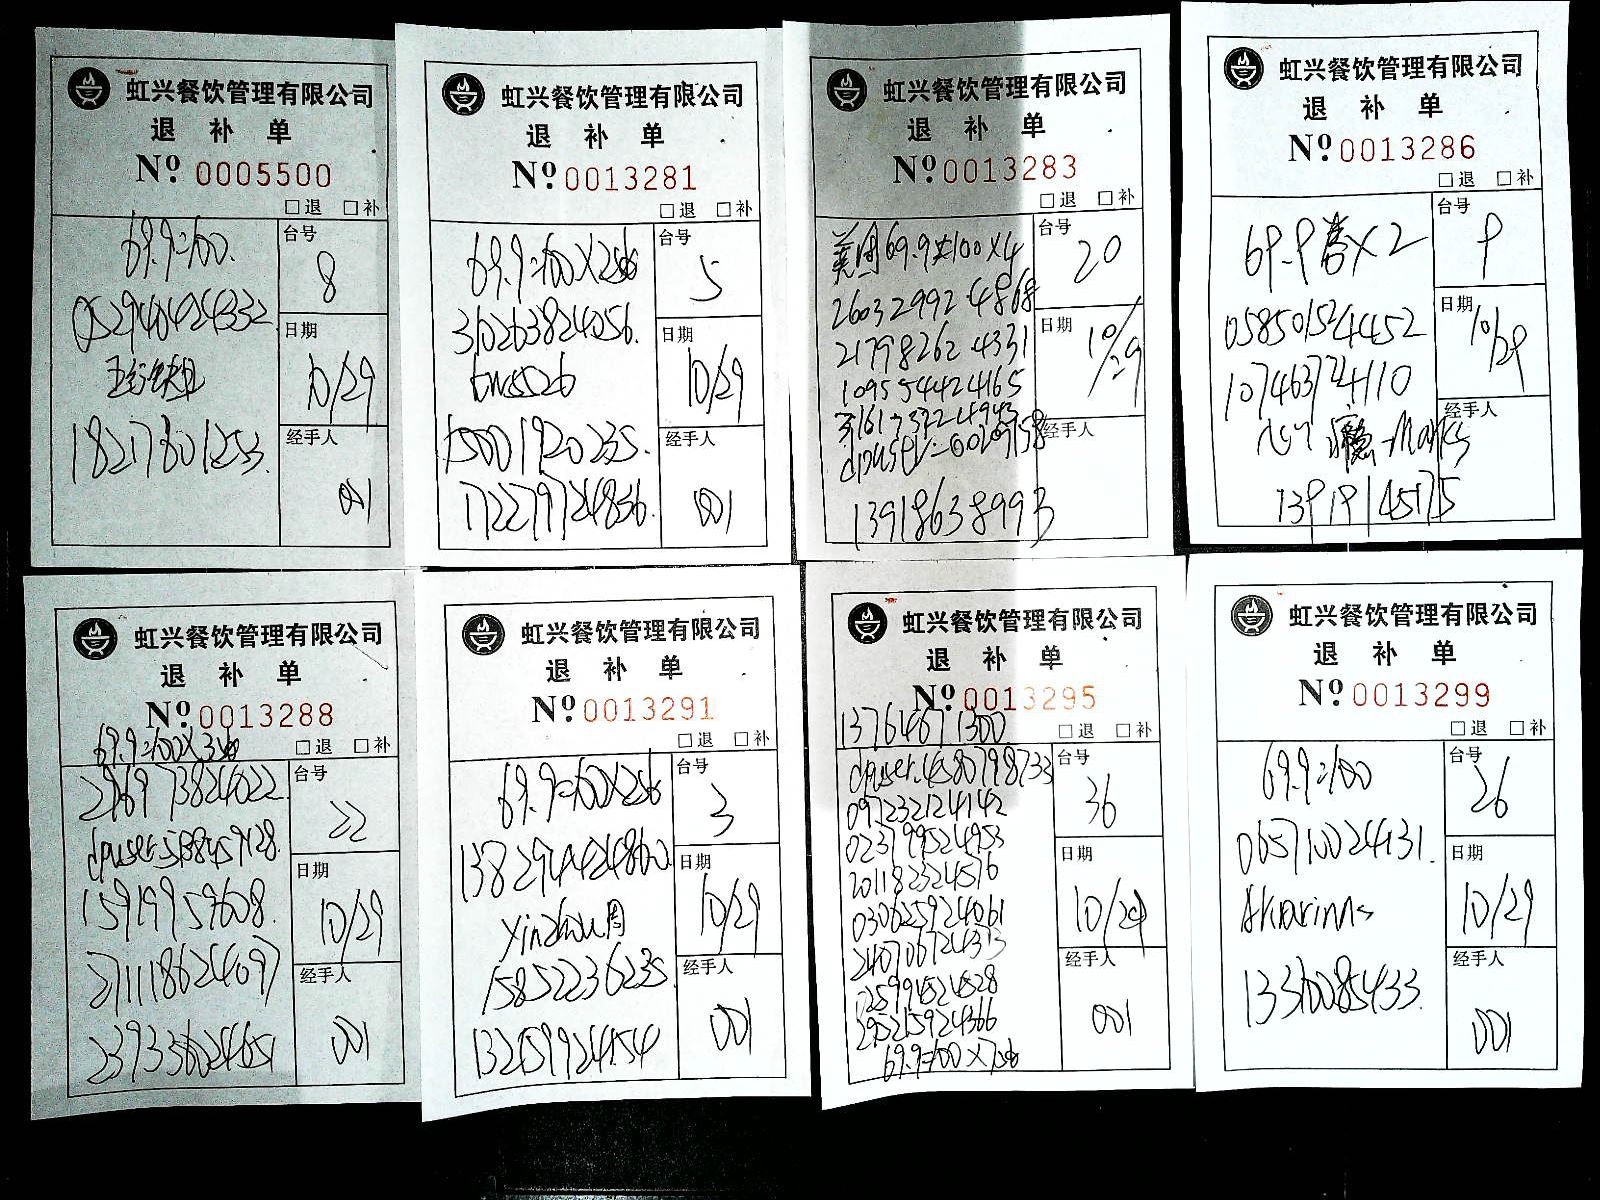 虹兴餐饮管理有限公司
退 补 单
Nº 0005500
□退 □补
69.9=100.
052940424332
18217801253
台号
8
日期
10/29
经手人
001
虹兴餐饮管理有限公司
退 补 单
Nº 0013281
□退 □补
310263824056.
15001920235.
172279724836.
台号
5
日期
10/29
经手人
001
虹兴餐饮管理有限公司
退 补 单
Nº 0013283
□退 □补
美团69.9抵100×4
260329924868
217982624331
109554424165
13918638993
台号
20
日期
10/29
经手人
虹兴餐饮管理有限公司
退 补 单
Nº 0013286
□退 □补
69.9券×2
058501524452
107463724110
13919145175
台号
9
日期
10/29
经手人
虹兴餐饮管理有限公司
退 补 单
Nº 0013288
□退 □补
2296973824022
dpuser-5138459128.
15919959608.
271118624097
239336024651
台号
22
日期
10/29
经手人
001
虹兴餐饮管理有限公司
退 补 单
Nº 0013291
□退 □补
138294424860
yinzhou周
15852236235
132159924154
台号
3
日期
10/29
经手人
001
虹兴餐饮管理有限公司
退 补 单
Nº 0013295
□退 □补
13764671300
dpuser-4580798733
097232124142
023799524953
201182324576
030625924061
240706724373
125994524528
295215924366
台号
36
日期
10/29
经手人
001
虹兴餐饮管理有限公司
退 补 单
Nº 0013299
□退 □补
69.9=100
065710024131.
13310085433.
台号
26
日期
10/29
经手人
001